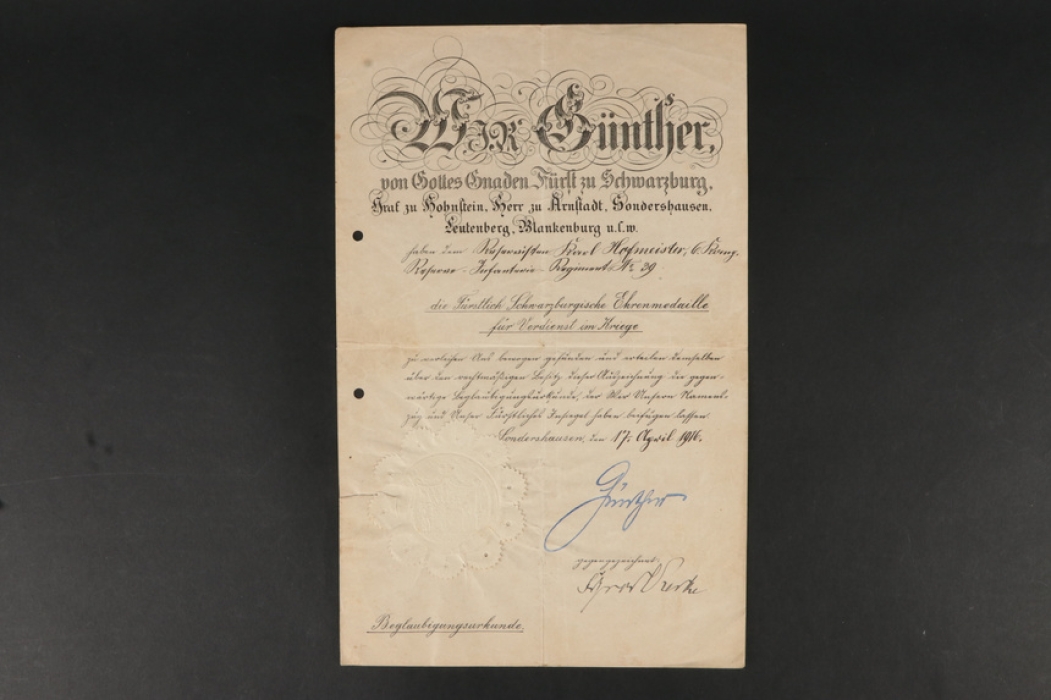 Wir Günther,
von Gottes Gnaden Fürst zu Schwarzburg,
Graf zu Hohnstein, Herr zu Arnstadt, Sondershausen,
Leutenberg, Blankenburg u.s.w.
haben dem Reservisten Karl Hofmeister, 6 Komp.
Reserve-Infanterie-Regiment No 29
die Fürstlich Schwarzburgische Ehrenmedaille
für Verdienst im Kriege
zu verleihen Uns bewogen gefunden und erteilen demselben
über den rechtmäßigen Besitz dieser Auszeichnung die gegen-
wärtige Beglaubigungsurkunde, der Wir Unsern Namens-
zug und Unser Fürstliches Insiegel haben beifügen lassen.
Sondershausen, den 17. April 1916.
Günther
gegengezeichnet:
Beglaubigungsurkunde.